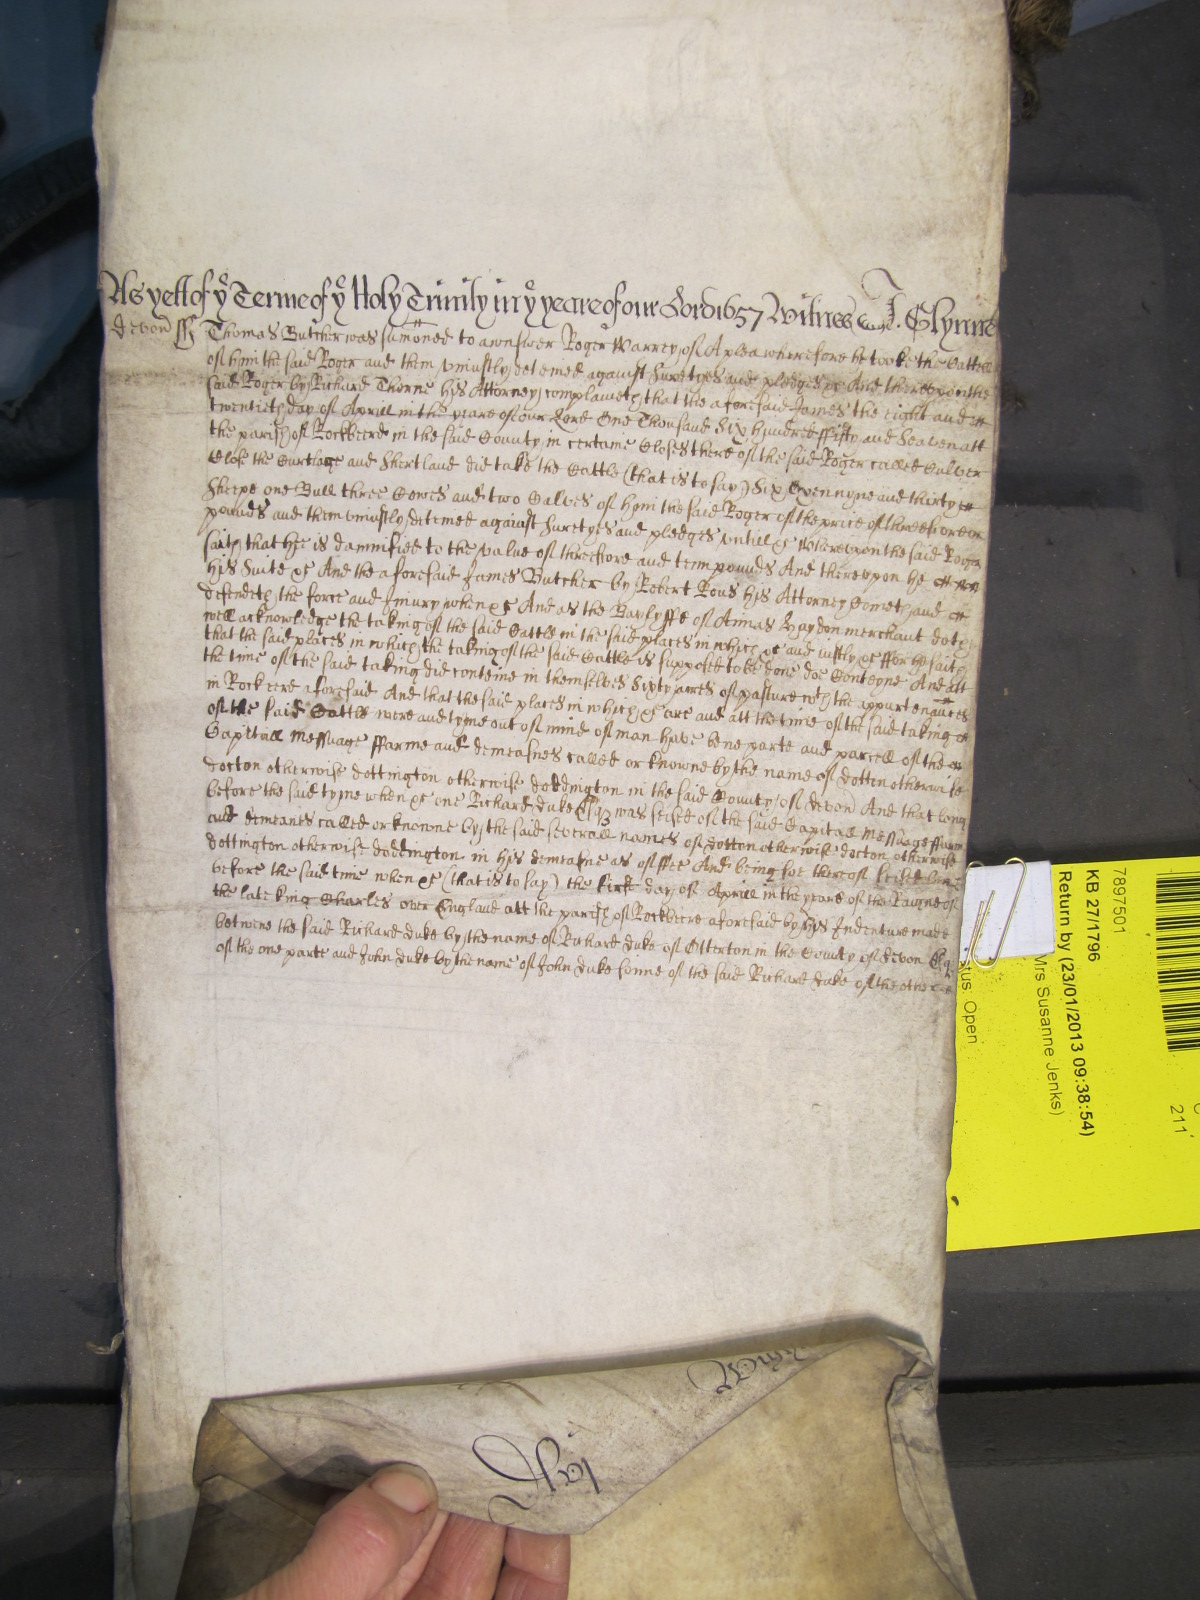 As yett of yͤ Terme of yͤ Holy Trinity in yͤ yeare of our Lord 1657 Witnes J. Glynne
Devon ss Thomas Butcher was sumoned to answer Roger Warrey of A plea wherefore he tooke the Cattell
of him the said Roger and them uniustly deteined against suretyes and pledges &c And thereupon the
said Roger by Richard Thorne his Attorney complaineth that the aforesaid James the eight and
twentieth day of Aprill in the yeare of our Lord One Thousand Six hundred ffifty and Seaven att
the parish of Rockbeere in the said County in certaine Closes there of the said Roger called Culver
Close the Curtlage and Shertland did take the Cattle (that is to say) Six Oxen nyne and thirty
Sheepe one Bull three Cowes and two Calves of him the said Roger of the price of threescore
pounds and them uniustly deteined against suretyes and pledges untill &c Whereupon the said Roger
saith that hee is damnified to the value of threescore and tenn pounds And thereupon he
his Suite &c And the aforesaid James Butcher by Robert Rous his Attorney Cometh and
defendeth the force and Iniury when &c And as the Baylyffe of Annas Haydon merchant doth
well acknowledge the taking of the said Cattle in the said places in which &c and iustly &c ffor he saith
that the said places in which the taking of the said Cattle is supposed to be done doe Conteyne And att
the time of the said taking did conteine in themselves Sixty acres of pasture with the appurtenances
in Rockbeere aforesaid And that the said places in which &c are and att the time of the said taking
of the said Cattle were and tyme out of mind of man have bene parte and parcell of the
Capitall Messuage ffarme and demeasnes called or knowne by the name of Dotten otherwise
Docton otherwise Dottington otherwise Doddington in the said County of Devon And that long
before the said tyme when &c one Richard Duke Esqz was seised of the said Capitall Messuage ffarme
and demeanes called or knowne by the said severall names of Dotton otherwise Docton otherwise
Dottington otherwise Doddington in his demeasne as of ffee And being soe thereof seised
before the said time when &c (that is to say) the first day of Aprill in the yeare of the Raigne of
the late king Charles over England att the parish of Rockbeere aforesaid by his Indenture made
betweene the said Richard Duke by the name of Richard Duke of Otterton in the County of Devon Esqz
of the one parte and John Duke by the name of John Duke sonne of the said Richard Duke of the other
7897501
KB 27/1796
Return by (23/01/2013 09:38:54)
Mrs Susanne Jenks)
Open
211